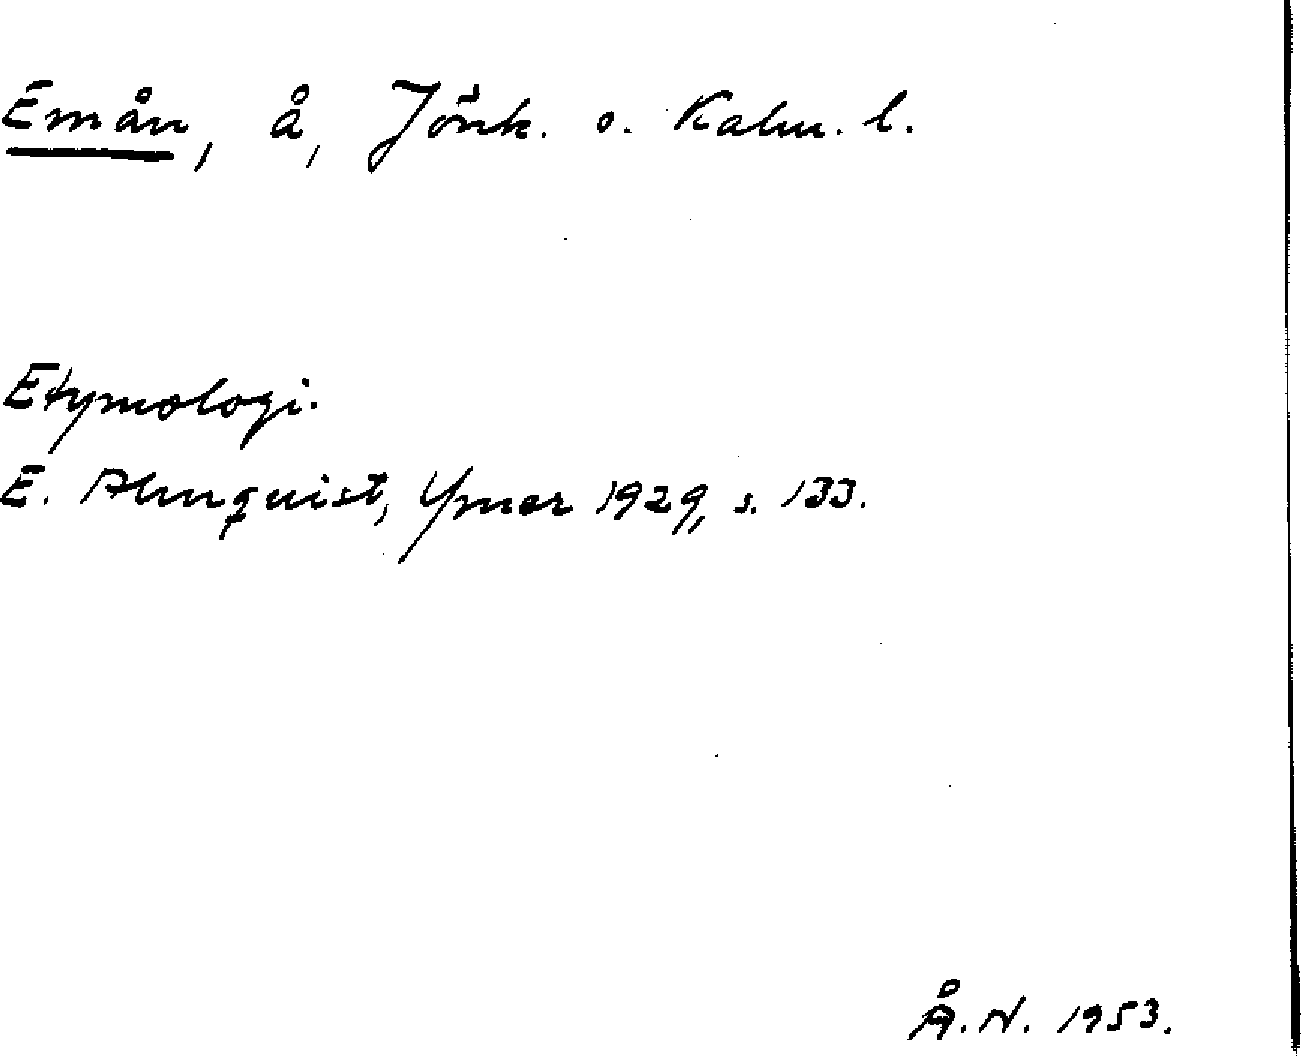 Emån, å, Jönk. o. Kalm. l.
Etymologi.
E. Almquist, Ymer 1929, s. 133.
Å. N. 1953.